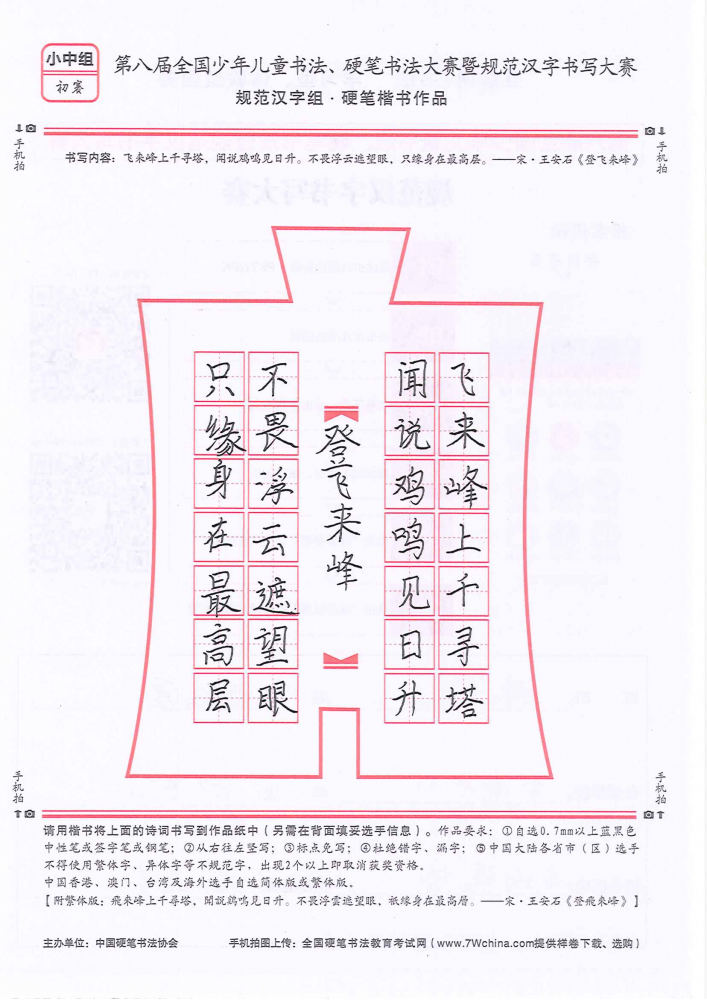 小中组
初赛
第八届全国少年儿童书法、硬笔书法大赛暨规范汉字书写大赛
规范汉字组·硬笔楷书作品
手机拍
手机拍
书写内容：飞来峰上千寻塔，闻说鸡鸣见日升。不畏浮云遮望眼，只缘身在最高层。——宋·王安石《登飞来峰》
飞来峰上千寻塔
闻说鸡鸣见日升
登飞来峰
不畏浮云遮望眼
只缘身在最高层
手机拍
手机拍
请用楷书将上面的诗词书写到作品纸中（另需在背面填妥选手信息）。作品要求：①自选0.7mm以上蓝黑色
中性笔或签字笔或钢笔；②从右往左竖写；③标点免写；④杜绝错字、漏字；⑤中国大陆各省市（区）选手
不得使用繁体字、异体字等不规范字，出现2个以上即取消获奖资格。
中国香港、澳门、台湾及海外选手自选简体版或繁体版。
【附繁体版：飛來峰上千尋塔，聞說鷄鳴見日升。不畏浮雲遮望眼，祇緣身在最高層。——宋·王安石《登飛來峰》】
主办单位：中国硬笔书法协会
手机拍图上传：全国硬笔书法教育考试网（www.7Wchina.com提供样卷下载、选购）